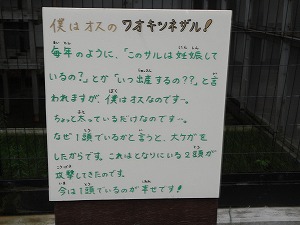 僕はオスのワオキツネザル!
毎年のように、「このサルは妊娠して
いるの?」とか「いつ出産するの??」と言
われますが、僕はオスなのです〜。
ちょっと太っているだけなのです〜。
なぜ1頭でいるかと言うと、大ケガを
したからです。これはとなりにいる2頭が
攻撃してきたのです。
今は1頭でいるのが幸せです!